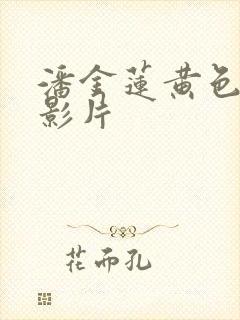 潘金蓮黄色
影片
花而孔